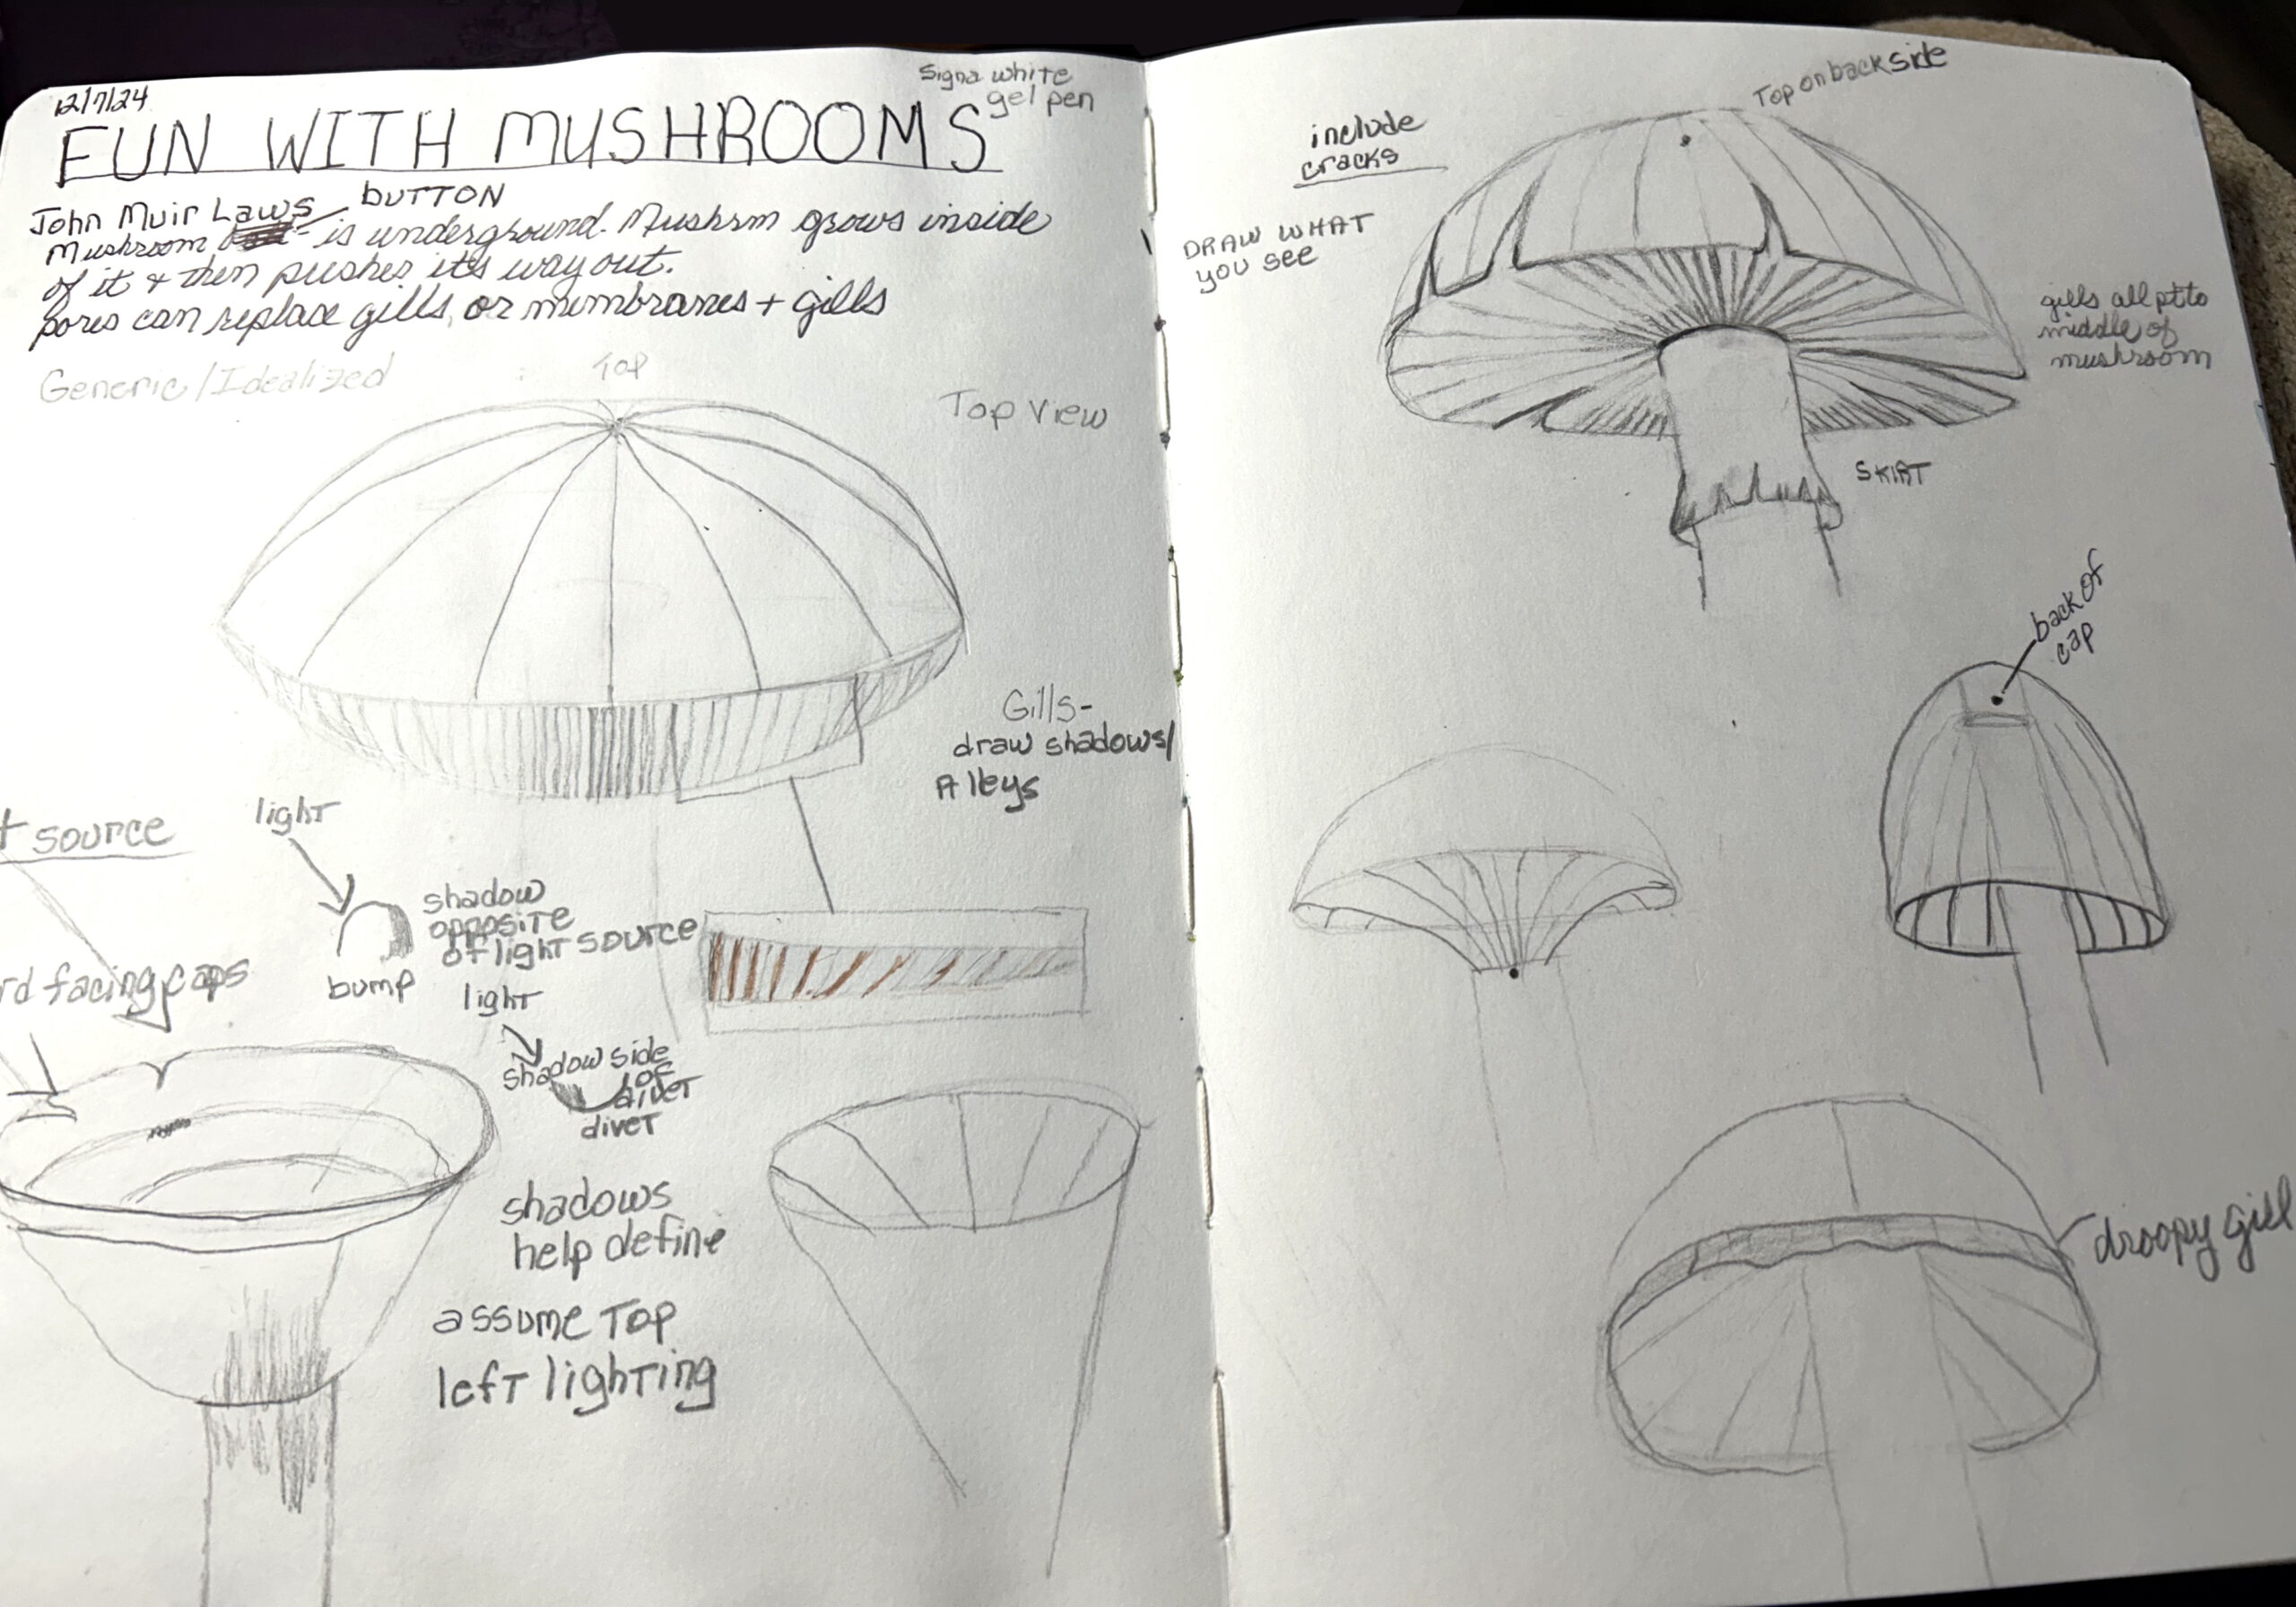 12/7/24
Signa white
gel pen
FUN WITH MUSHROOMS
John Muir Laws
button
Mushroom is underground. Mushrm grows inside
of it + then pushes its way out.
pores can replace gills, or membranes + gills
Generic/Idealized
Top
Top View
Gills-
draw shadows/
Alleys
light
source
shadow
opposite
of light source
bump
rd facing caps
light
shadow side
of
divet
divet
shadows
help define
assume Top
left lighting
Top on back side
include
cracks
DRAW WHAT
you see
gills all pt to
middle of
mushroom
SKIRT
back of
cap
droopy gill